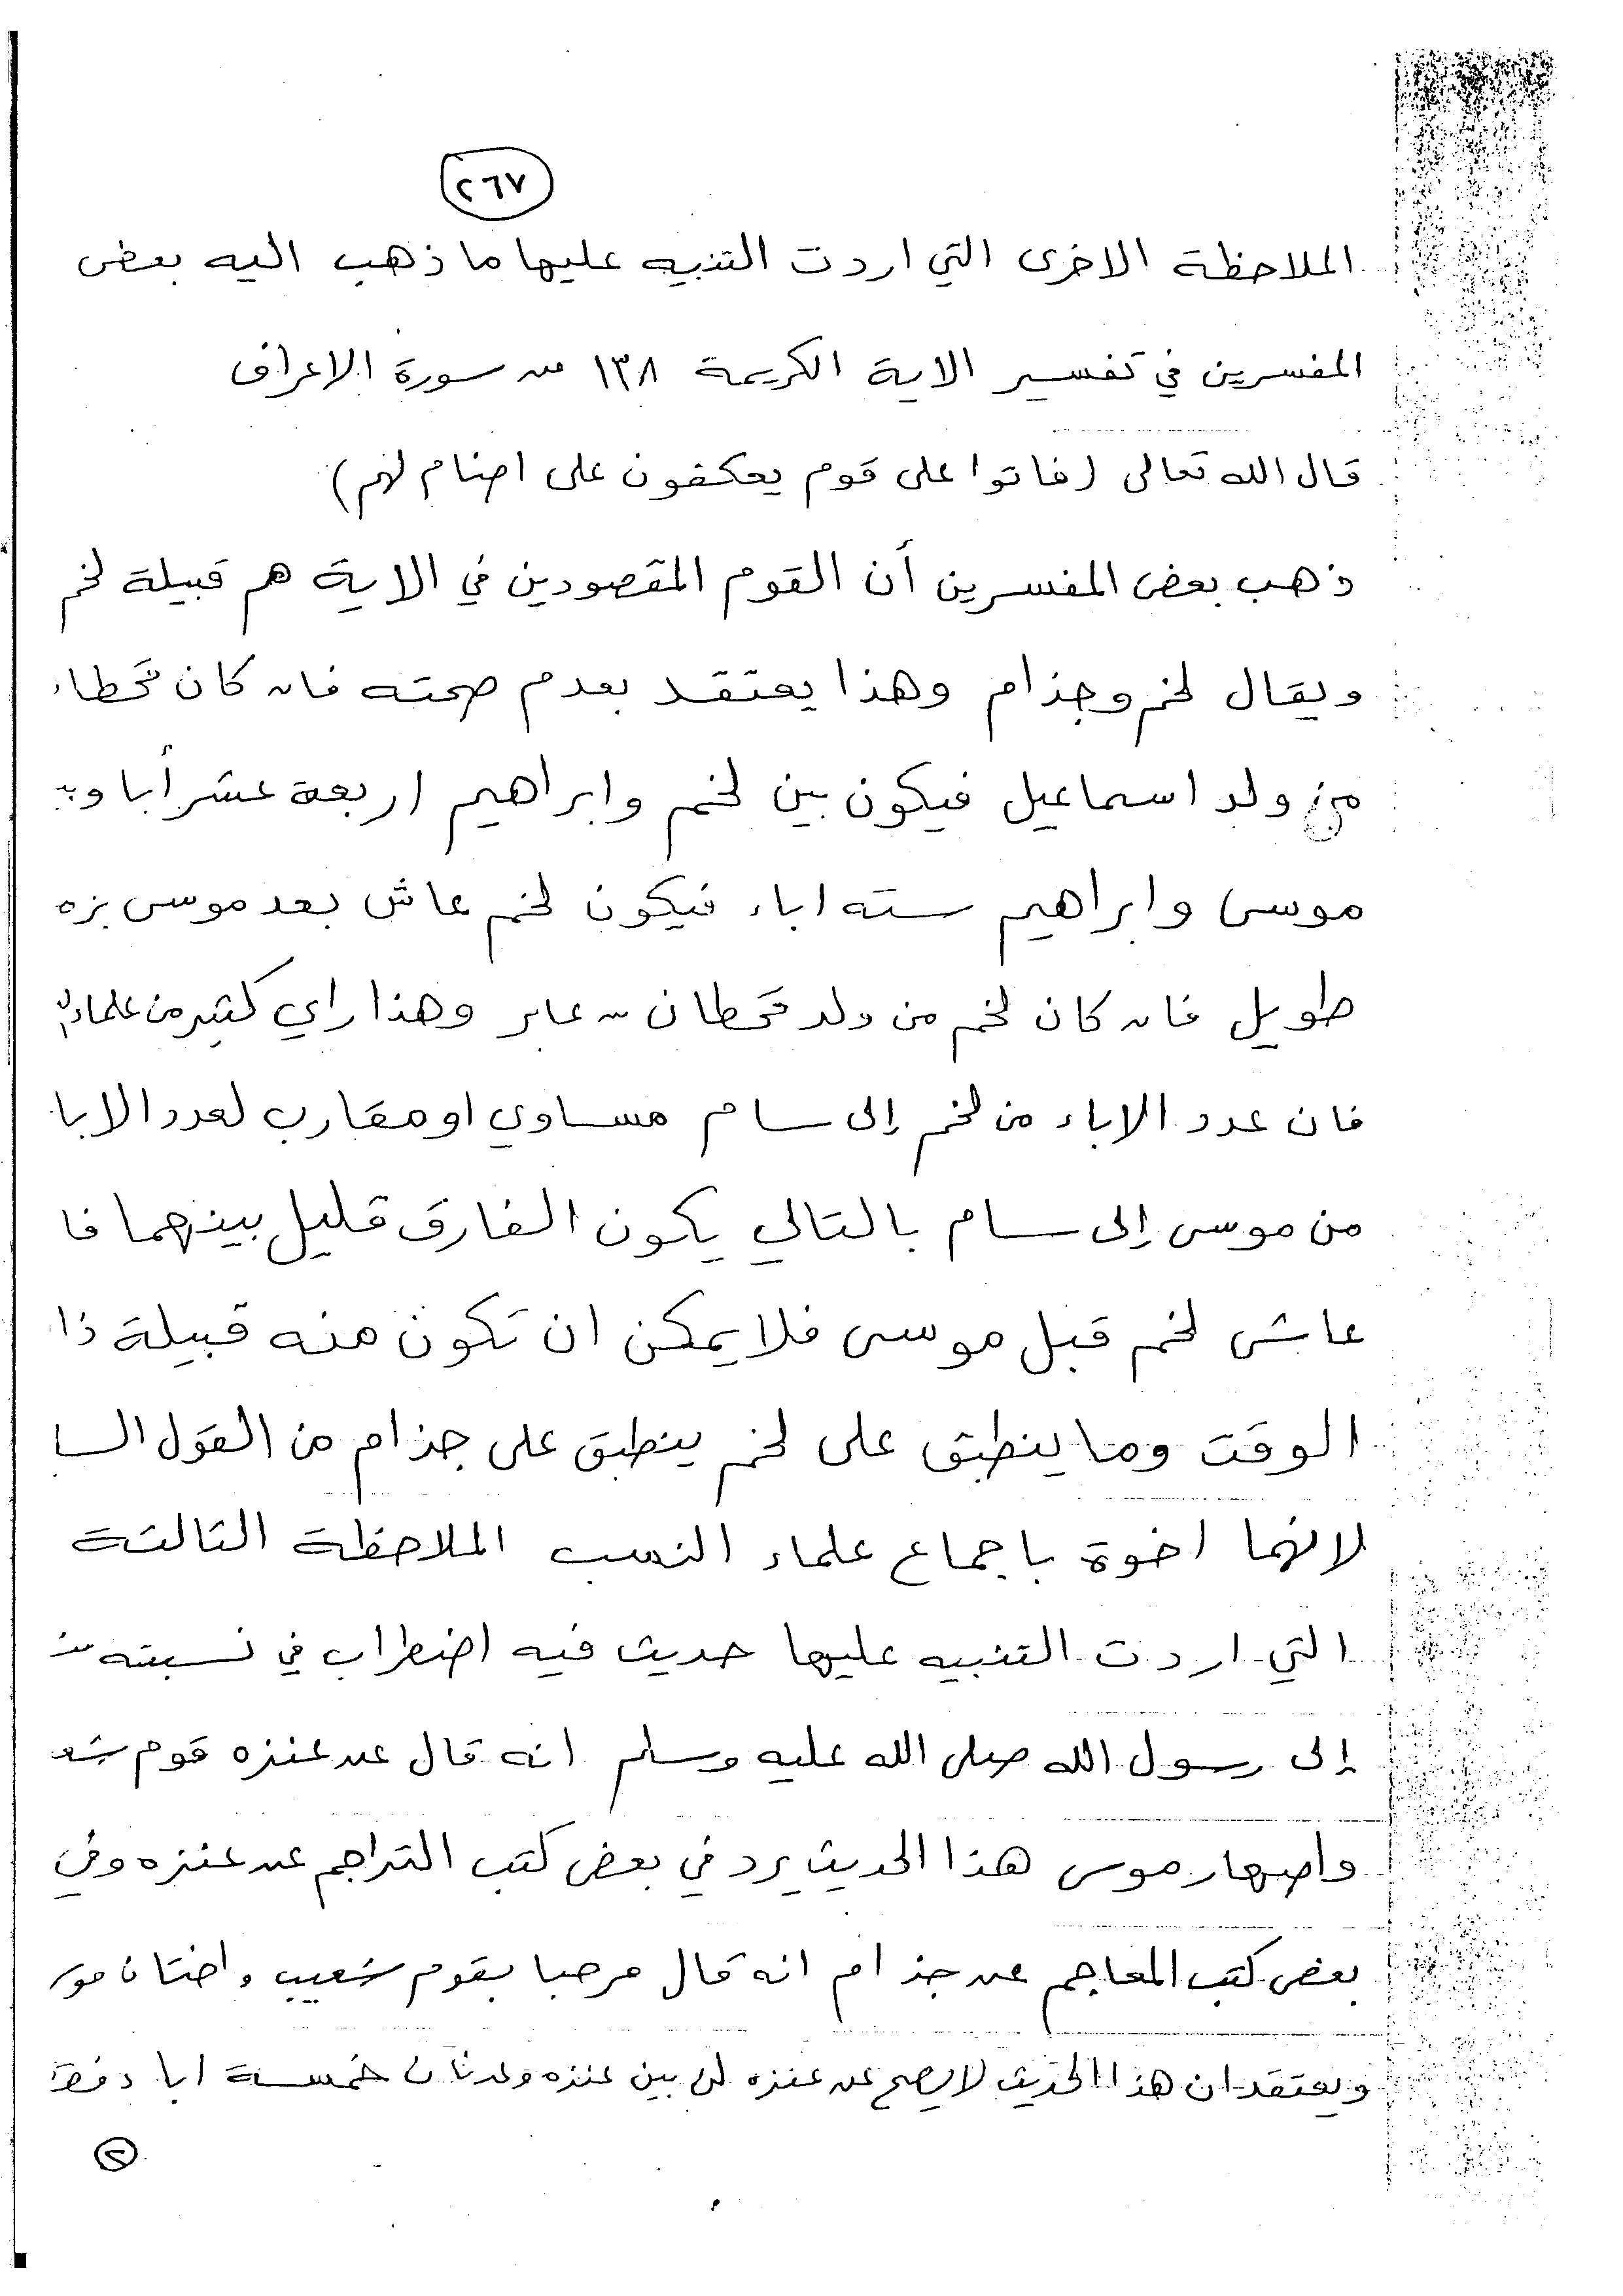 ٢٦٧
الملاحظة الاخرى التي اردت التنبيه عليها ما ذهب اليه بعض
المفسرين في تفسير الاية الكريمة ١٣٨ من سورة الاعراف
قال الله تعالى (فاتوا على قوم يعكفون على اصنام لهم)
ذهب بعض المفسرين أن القوم المقصودين في الاية هم قبيلة لخم
ويقال لخم وجذام وهذا يعتقد بعدم صحته فان كان قحطا
من ولد اسماعيل فيكون بين لخم وابراهيم اربعة عشر أبا وبـ
موسى وابراهيم سته اباء فيكون لخم عاش بعد موسى بزه
طويل فان كان لخم من ولد قحطان بن عابر وهذا راي كثير من علماء
فان عدد الاباء من لخم إلى سام مساوي او مقارب لعدد الابا
من موسى إلى سام بالتالي يكون الفارق قليل بينهما فا
عاش لخم قبل موسى فلا يمكن ان تكون منه قبيلة ذا
الوقت وما ينطبق على لخم ينطبق على جذام من القول السا
لانهما اخوة باجماع علماء النسب الملاحظة الثالثة
التي اردت التنبيه عليها حديث فيه اضطراب في نسبته
إلى رسول الله صلى الله عليه وسلم انه قال عن عنزه قوم شعـ
واصهار موسى هذا الحديث يرد في بعض كتب التراجم عن عنزه وفي
بعض كتب المعاجم عن جذام انه قال مرحبا بقوم شعيب واختان مو
ويعتقد ان هذا الحديث لا يصح عن عنزه لان بين عنزه وعدنان خمسة ابا
٢